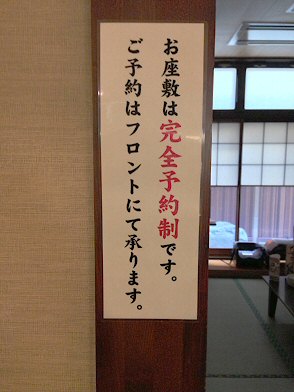 お座敷は完全予約制です。
ご予約はフロントにて承ります。